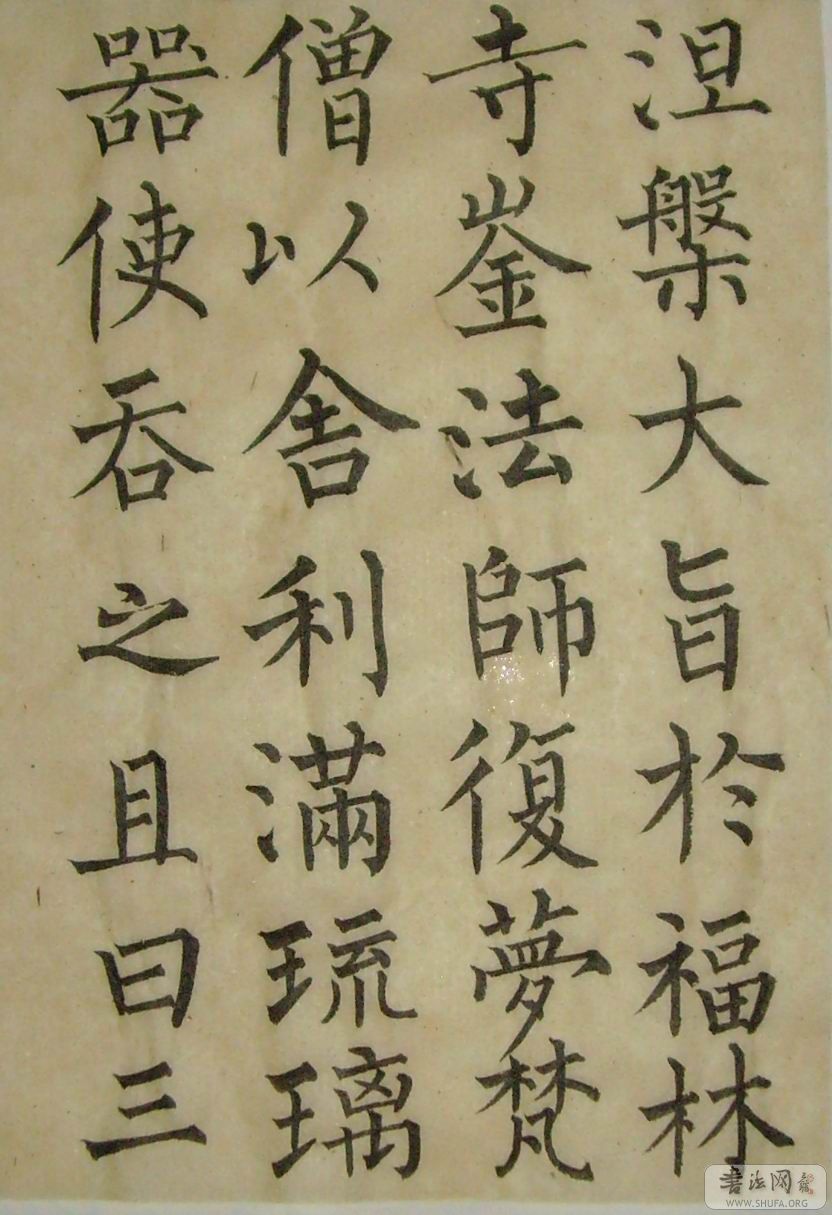 涅槃大旨於福林
寺崟法師復夢梵
僧以舎利滿琉璃
器使吞之且曰三
書法网
WWW.SHUFA.ORG